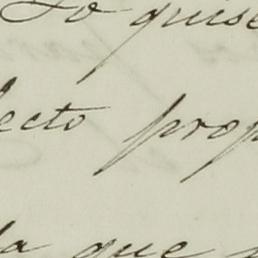 Yo quise
ecto prop
la que